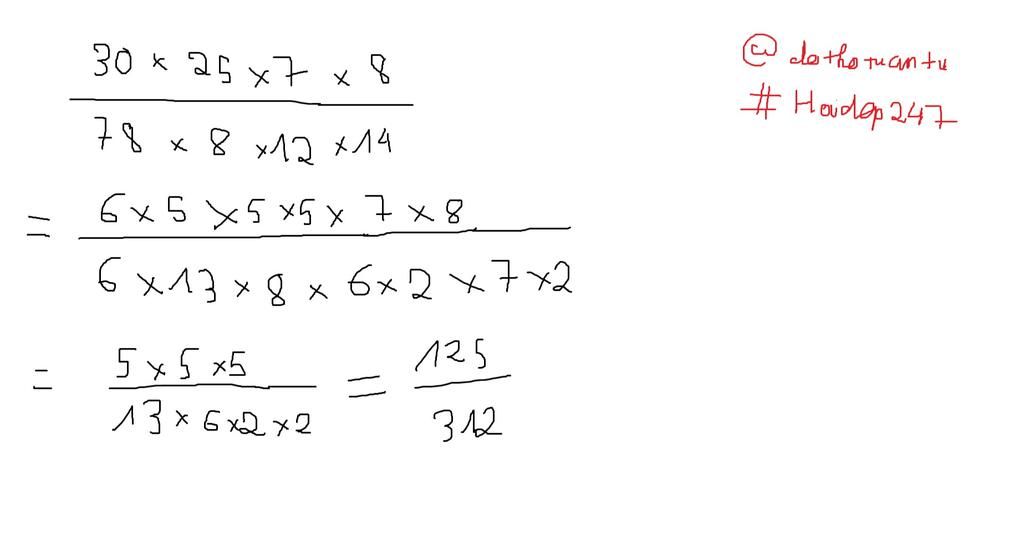 30 × 25 × 7 × 8
78 × 8 × 12 × 14
= 6 × 5 × 5 × 5 × 7 × 8
6 × 13 × 8 × 6 × 2 × 7 × 2
= 5 × 5 × 5
13 × 6 × 2 × 2
= 125
312
@
# Hoidap247